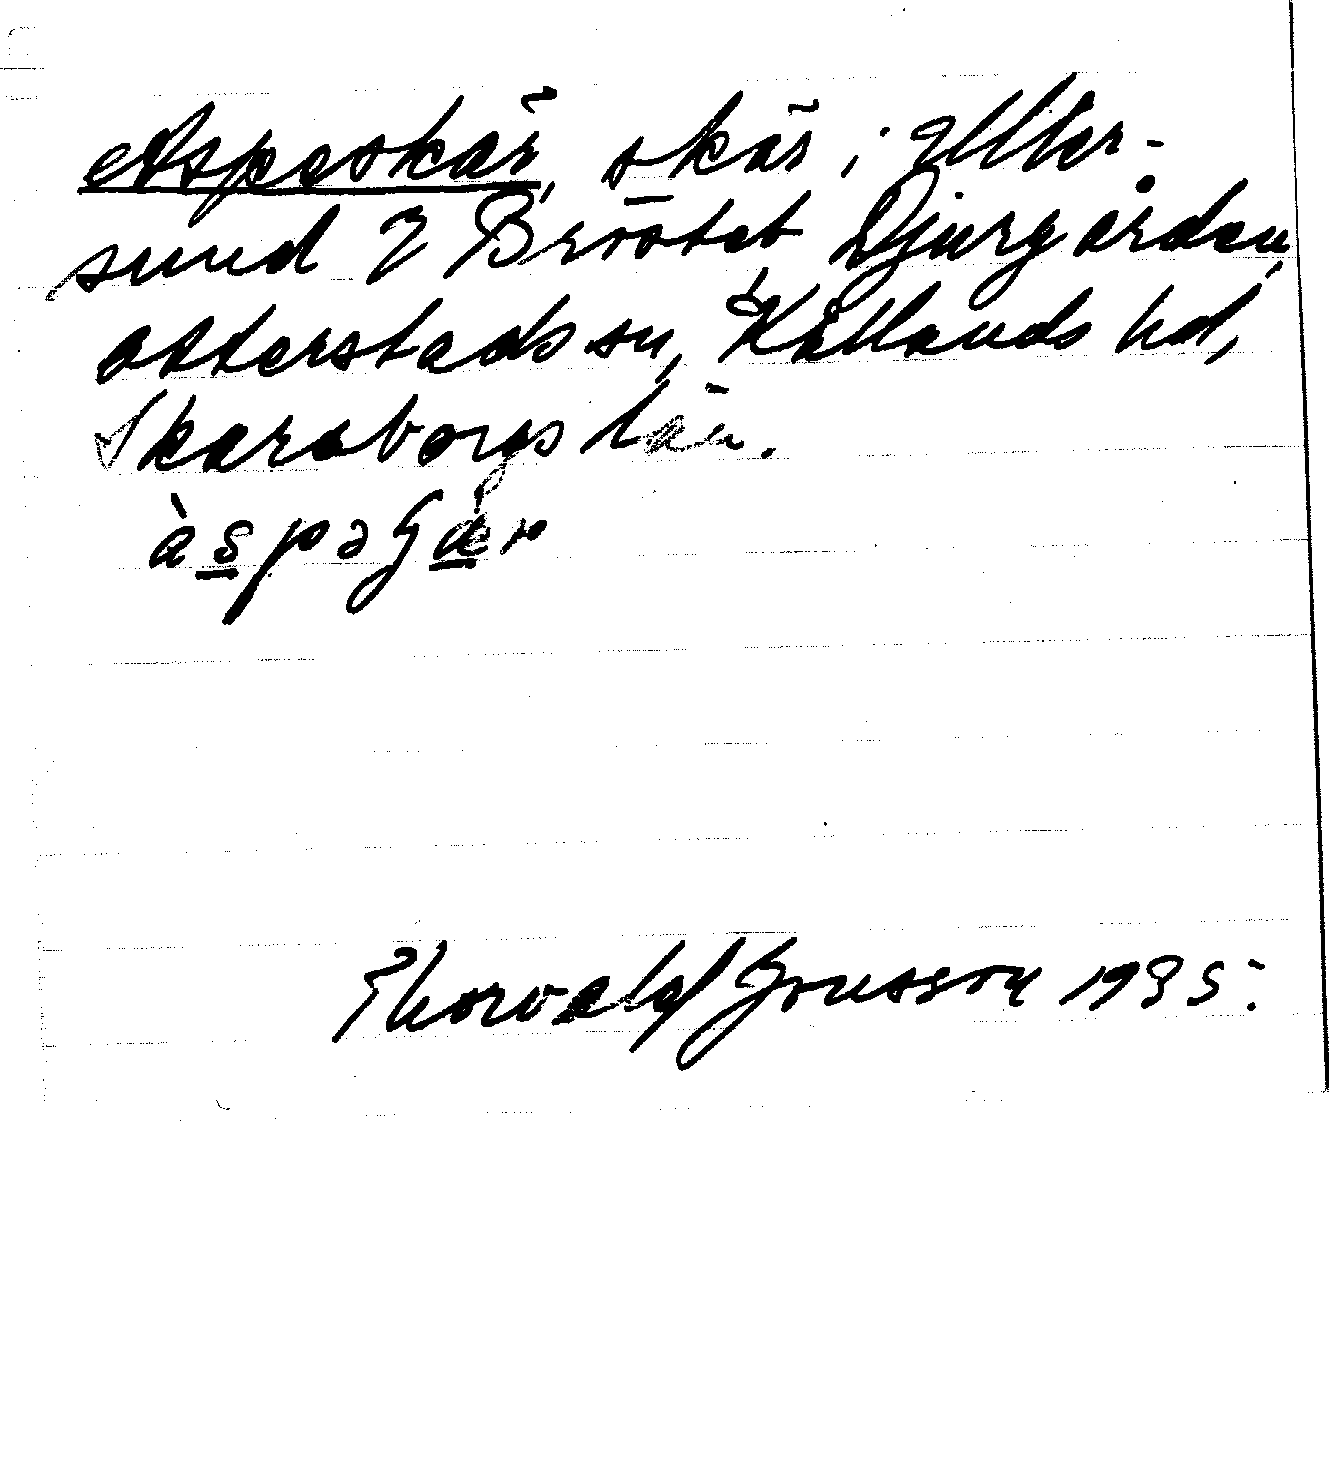 Aspeskär, skär i Uller-
sund I Brötet Djurgården,
Otterstads sn, Kållands hd,
Skaraborgs län.
àspəʃær
Thorvald Jonsson 1935.